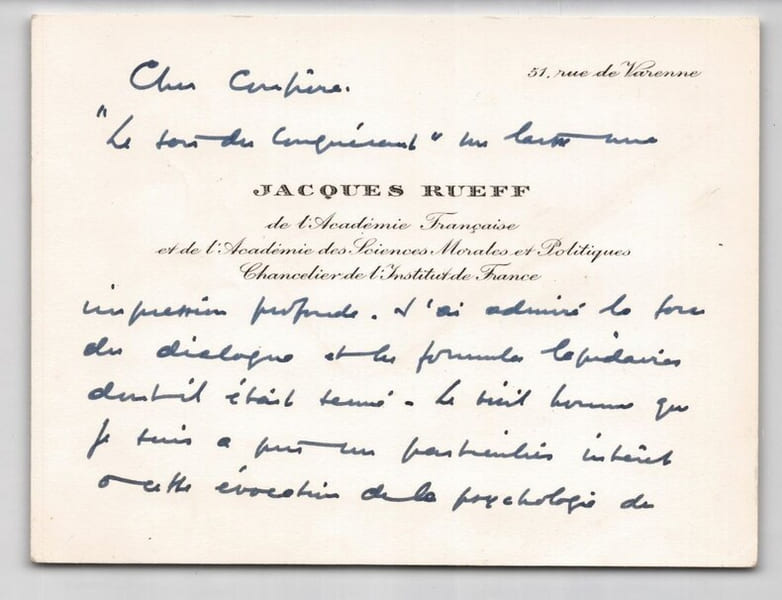 51, rue de Varenne
Cher Confrère.
"Le soir du Conquérant" me laisse une
JACQUES RUEFF
de l'Académie Française
et de l'Académie des Sciences Morales et Politiques
Chancelier de l'Institut de France
impression profonde. J'ai admiré la force
du dialogue et les formules lapidaires
dont il était semé. Le vieil homme que
je suis a pris un particulier intérêt
à cette évocation de la psychologie de